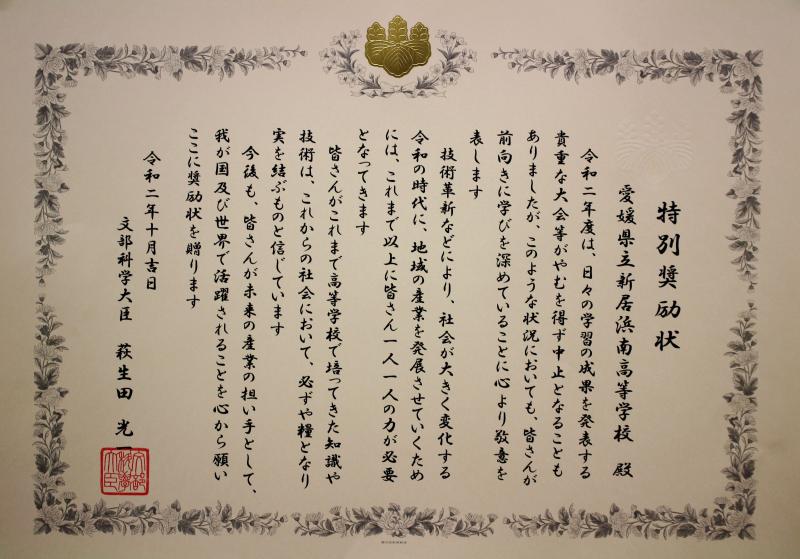 特別奨励状
愛媛県立新居浜南高等学校 殿
令和二年度は、日々の学習の成果を発表する
貴重な大会等がやむを得ず中止となることも
ありましたが、このような状況においても、皆さんが
前向きに学びを深めていることに心より敬意を
表します
技術革新などにより、社会が大きく変化する
令和の時代に、地域の産業を発展させていくため
には、これまで以上に皆さん一人一人の力が必要
となってきます
皆さんがこれまで高等学校で培ってきた知識や
技術は、これからの社会において、必ずや糧となり
実を結ぶものと信じています
今後も、皆さんが未来の産業の担い手として、
我が国及び世界で活躍されることを心から願い
ここに奨励状を贈ります
令和二年十月吉日
文部科学大臣 萩生田光一
文部科学大臣